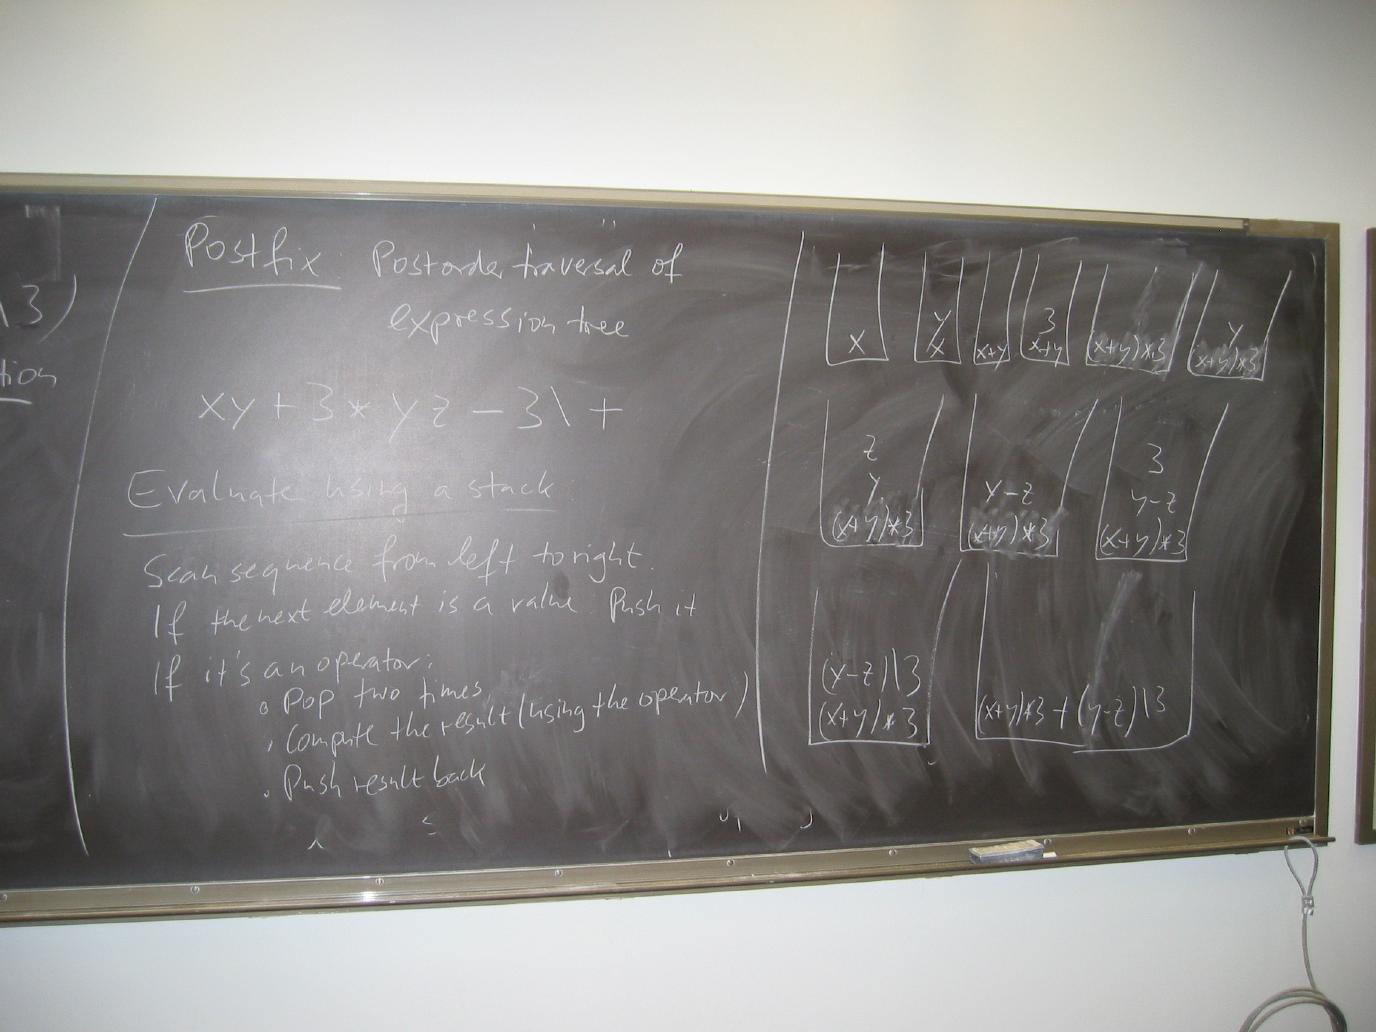 \3)
tion
Postfix: Postorder traversal of
expression tree
xy + 3 * yz - 3 \ +
Evaluate using a stack
Scan sequence from left to right.
If the next element is a value: Push it
If it's an operator:
Pop two times
Compute the result (using the operator)
Push result back
x
y
x
x+y
3
x+y
(x+y)*3
y
(x+y)*3
z
y
(x+y)*3
y-z
(x+y)*3
3
y-z
(x+y)*3
(y-z)\3
(x+y)*3
(x+y)*3 + (y-z)\3